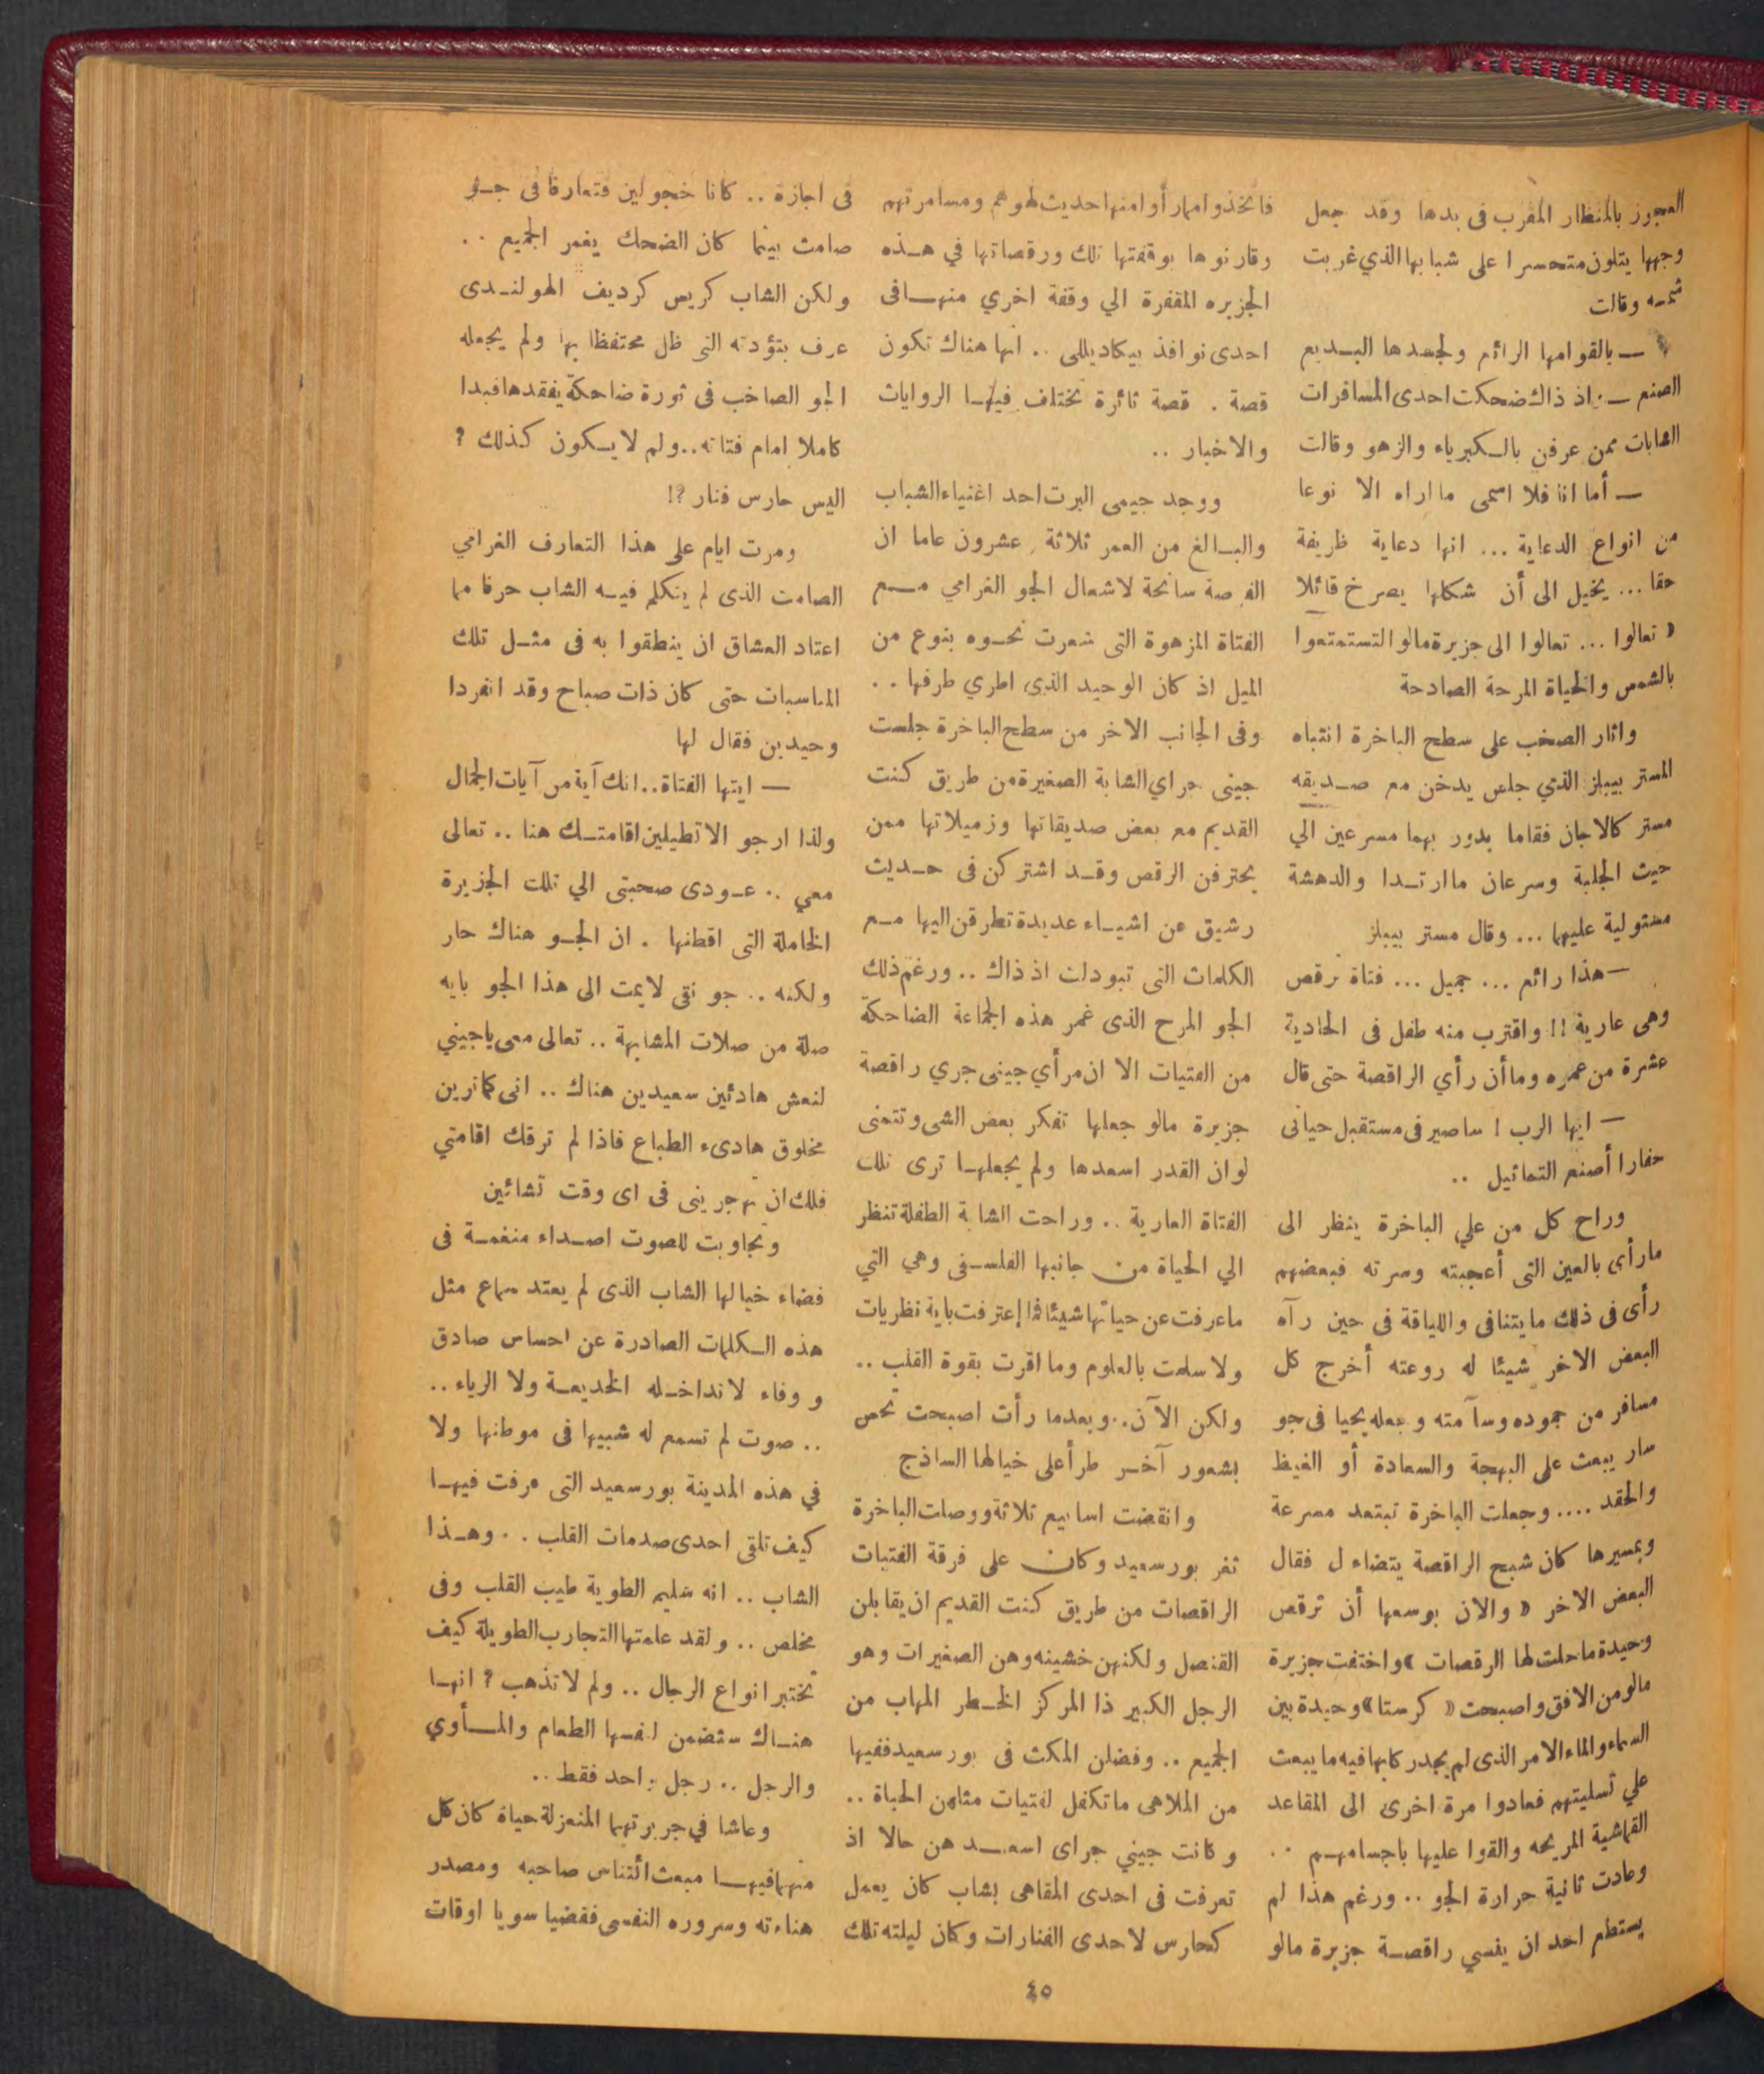 العجوز بالمنظار المقرب فى يدها وقد جعل
وجهها يتلون متحسرا على شبابها الذي غربت
شمسه وقالت
— يالقوامها الرائع ولجسدها البديع
الصنع — : اذ ذاك ضحكت احدى المسافرات
الشابات ممن عرفن بالكبرياء والزهو وقالت
— أما انا فلا اسمى ما اراه الا نوعا
من انواع الدعاية ... انها دعاية ظريفة
حقا ... يخيل الى أن شكلها يصرخ قائلا
« تعالوا ... تعالوا الى جزيرة مالو التستمتعوا
بالشمس والحياة المرحة الصادحة
واثار الصخب على سطح الباخرة انتباه
المستر بيبلز الذي جلس يدخن مع صديقه
مستر كالاجان فقاما يدور بهما مسرعين الي
حيث الجلبة وسرعان ما ارتدا والدهشة
مستولية عليهما ... وقال مستر بيبلز
— هذا رائع ... جميل ... فتاة ترقص
وهى عارية !! واقترب منه طفل فى الحادية
عشرة من عمره وما أن رأي الراقصة حتى قال
— ايها الرب ! ساصير فى مستقبل حياتى
حفارا أصنع التماثيل ..
وراح كل من علي الباخرة ينظر الى
مارأى بالعين التى أعجبته وسرته فبعضهم
رأى فى ذلك ما يتنافى واللياقة فى حين رآه
البعض الاخر شيئا له روعته أخرج كل
مسافر من جموده وسآمته وجعله يحيا فى جو
سار يبعث على البهجة والسعادة أو الغيظ
والحقد .... وجعلت الباخرة تبتعد مسرعة
وبمسيرها كان شبح الراقصة يتضاءل فقال
البعض الاخر « والان بوسعها أن ترقص
وحيدة ماحلت لها الرقصات » واختفت جزيرة
مالو من الافق واصبحت « كرستا » وحيدة بين
السماء والماء الامر الذى لم يجدر كابها فيه ما يبعث
علي تسليتهم فعادوا مرة اخرى الى المقاعد
القماشية المريحه والقوا عليها باجسامهم ..
وعادت ثانية حرارة الجو .. ورغم هذا لم
يستطع احد ان ينسي راقصة جزيرة مالو
فاتخذوا مهار أوا منها حديث لهوهم ومسامرتهم
وقارنوها بوقفتها تلك ورقصاتها في هذه
الجزيره المقفرة الي وقفة اخري منها فى
احدى نوافذ بيكاديللى .. انها هناك تكون
قصة . قصة ثائرة تختلف فيها الروايات
والاخبار ..
ووجد جيمى البرت احد اغنياء الشباب
والبالغ من العمر ثلاثة وعشرون عاما ان
الفرصة سانحة لاشعال الجو الغرامي مع
الفتاة المزهوة التى شعرت نحوه بنوع من
الميل اذ كان الوحيد الذى اطري طرفها ..
وفى الجانب الاخر من سطح الباخرة جلست
جينى جراي الشابة الصغيرة من طريق كنت
القديم مع بعض صديقاتها وزميلاتها ممن
يحترفن الرقص وقد اشتركن فى حديث
رشيق عن اشياء عديدة تطرقن اليها مع
الكلمات التى تبودلت اذ ذاك .. ورغم ذلك
الجو المرح الذى غمر هذه الجماعة الضاحكة
من الفتيات الا ان مرأي جينى جري راقصة
جزيرة مالو جعلها تفكر بعض الشى وتتمنى
لو ان القدر اسعدها ولم يجعلها ترى تلك
الفتاة العارية .. وراحت الشابة الطفلة تنظر
الي الحياة من جانبها الفلسفى وهي التي
ماعرفت عن حياتها شيئا فما إعترفت باية نظريات
ولا سلمت بالعلوم وما اقرت بقوة القلب ..
ولكن الآن .. وبعدما رأت اصبحت تحس
بشعور آخر طرأ على خيالها الساذج
وانقضت اسابيع ثلاثة ووصلت الباخرة
ثغر بورسعيد وكان على فرقة الفتيات
الراقصات من طريق كنت القديم ان يقابلن
القنصل ولكنهن خشينه وهن الصغيرات وهو
الرجل الكبير ذا المركز الخطر المهاب من
الجميع .. وفضلن المكث فى بورسعيد ففيها
من الملاهى ماتكفل لفتيات مثلهن الحياة ..
وكانت جيني جراى اسعدهن حالا اذ
تعرفت فى احدى المقاهى بشاب كان يعمل
كحارس لاحدى الفنارات وكان ليلته تلك
فى اجازة .. كانا خجولين فتعارفا فى جو
صامت بينما كان الضحك يغمر الجميع ..
ولكن الشاب كريس كرديف الهولندى
عرف بتؤدته التى ظل محتفظا بها ولم يجعله
الجو الصاخب فى ثورة ضاحكة يفقدها فبدا
كاملا امام فتاته .. ولم لا يكون كذلك ؟
اليس حارس فنار ؟!
ومرت ايام على هذا التعارف الغرامي
الصامت الذى لم يتكلم فيه الشاب حرفا مما
اعتاد العشاق ان ينطقوا به فى مثل تلك
المناسبات حتى كان ذات صباح وقد انفردا
وحيدين فقال لها
— ايتها الفتاة .. انك آية من آيات الجمال
ولذا ارجو الا تطيلين اقامتك هنا .. تعالى
معي .. عودى صحبتى الي تلك الجزيرة
الخاملة التى اقطنها . ان الجو هناك حار
ولكنه .. جو نقى لايمت الى هذا الجو بايه
صلة من صلات المشابهة .. تعالى معى ياجيني
لنعش هادئين سعيدين هناك .. انى كما ترين
مخلوق هادىء الطباع فاذا لم ترقك اقامتي
فلك ان تهجرينى فى اى وقت تشائين
وتجاوبت للصوت اصداء منغمة فى
فضاء خيالها الشاب الذى لم يعتد سماع مثل
هذه الكلمات الصادرة عن احساس صادق
ووفاء لاتداخله الخديعة ولا الرياء ..
.. صوت لم تسمع له شبيها فى موطنها ولا
في هذه المدينة بورسعيد التى عرفت فيها
كيف تلقى احدى صدمات القلب .. وهذا
الشاب .. انه سليم الطوية طيب القلب وفى
مخلص .. ولقد علمتها التجارب الطويلة كيف
تختبر انواع الرجال .. ولم لا تذهب ؟ انها
هناك ستضمن لنفسها الطعام والمأوي
والرجل .. رجل واحد فقط ..
وعاشا في جزيرتهما المنعزلة حياة كان كل
منهما فيها مبعث ائتناس صاحبه ومصدر
هناءته وسروره النفسى فقضيا سويا اوقات
٤٥